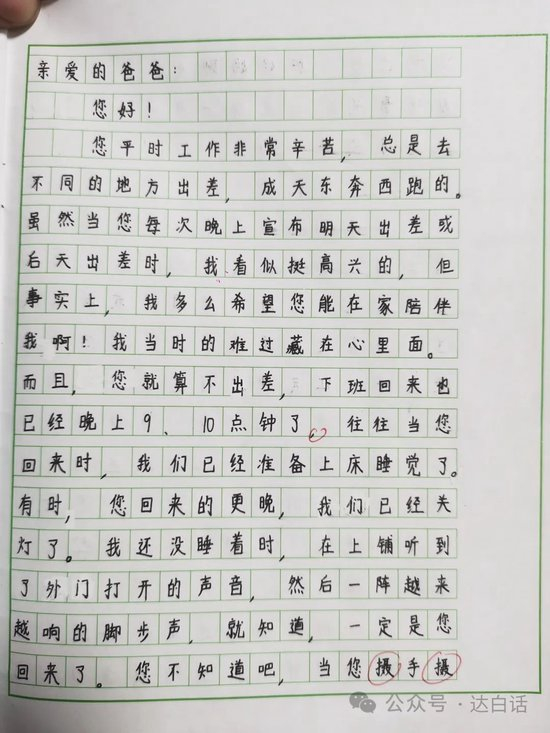 亲爱的爸爸：
您好！
您平时工作非常辛苦，总是去
不同的地方出差，成天东奔西跑的。
虽然当您每次晚上宣布明天出差或
后天出差时，我看似挺高兴的，但
事实上，我多么希望您能在家陪伴
我啊！我当时的难过藏在心里面。
而且，您就算不出差，下班回来也
已经晚上9、10点钟了。往往当您
回来时，我们已经准备上床睡觉了。
有时，您回来的更晚，我们已经关
灯了。我还没睡着时，在上铺听到
了外门打开的声音，然后一阵越来
越响的脚步声，就知道，一定是您
回来了。您不知道吧，当您摄手摄
公众号·达白话